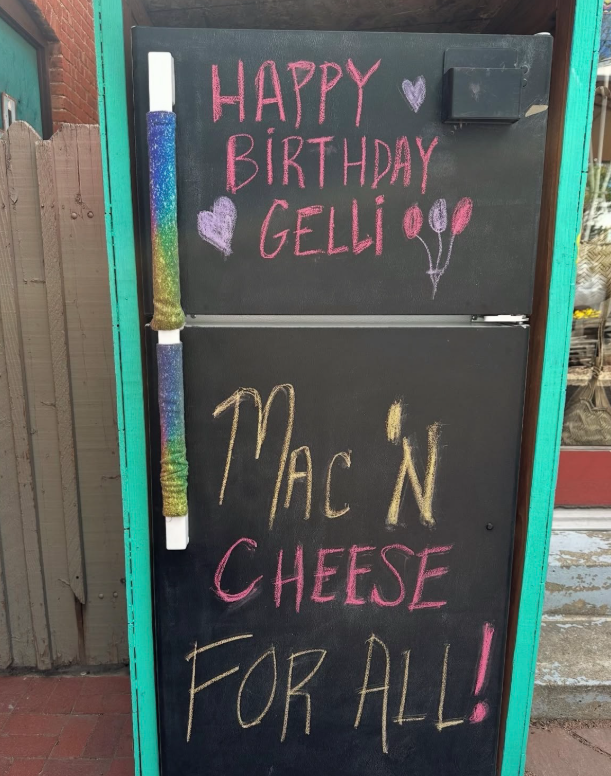 HAPPY
BiRTHDAY
GELLi
MAC 'N
CHEESE
FOR ALL!